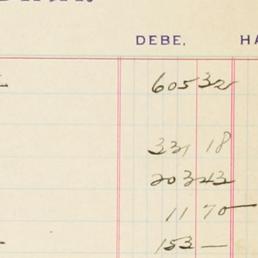 DEBE. HA
605 32
331 18
203 43
11 70
153 —